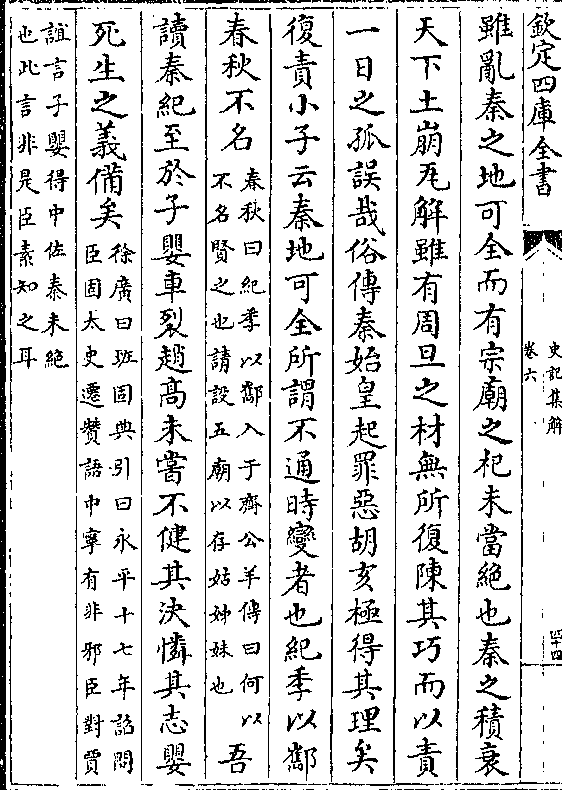 欽定四庫全書
史記集解
卷六
四十四
雖亂秦之地可全而有宗廟之祀未當絶也秦之積衰
天下土崩瓦解雖有周旦之材無所復陳其巧而以責
一日之孤誤哉俗傳秦始皇起罪惡胡亥極得其理矣
復責小子云秦地可全所謂不通時變者也紀季以酅
春秋不名
春秋曰紀季以酅入于齊公羊傳曰何以
不名賢之也請設五廟以存姑姊妹也
吾
讀秦紀至於子嬰車裂趙高未嘗不健其決憐其志嬰
死生之義備矣
徐廣曰班固典引曰永平十七年詔問
臣固太史遷贊語中寧有非邪臣對賈
誼言子嬰得中佐秦未絶
也此言非是臣素知之耳